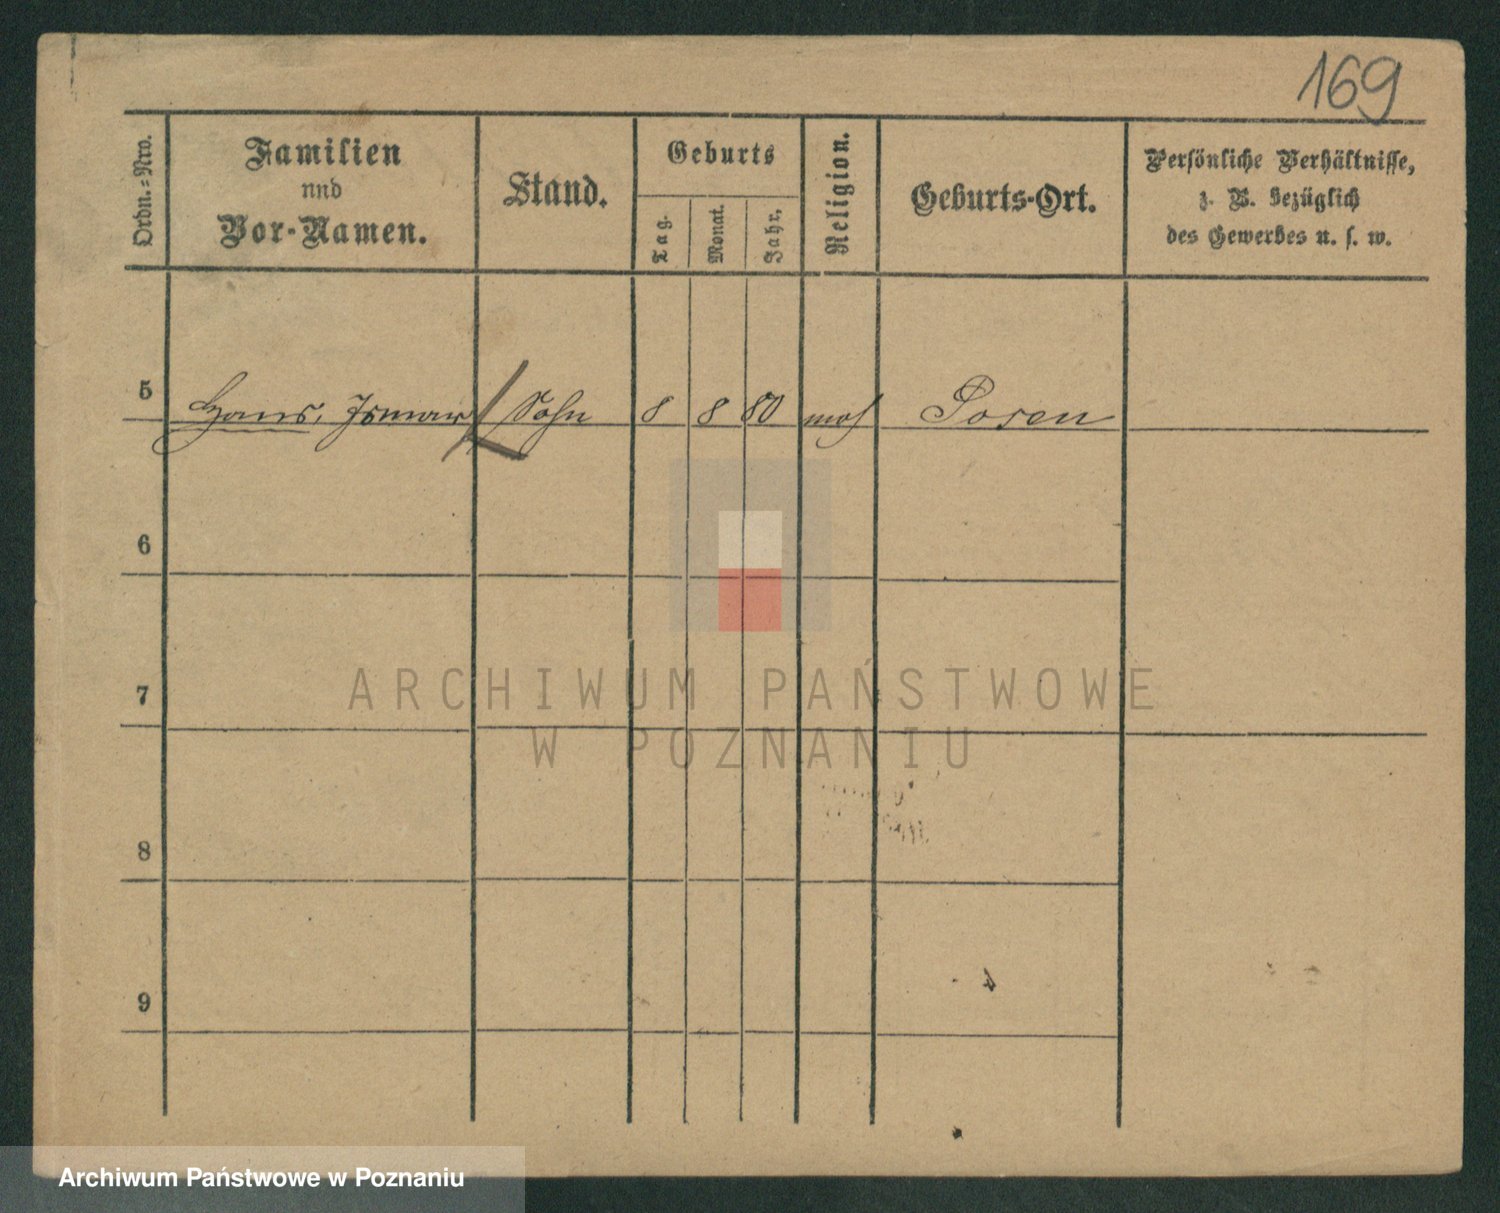 169
Ordn.-Nro.
Familien
und
Vor-Namen.
Stand.
Geburts
Tag.
Monat.
Jahr.
Religion.
Geburts-Ort.
Persönliche Verhältnisse,
z. B. bezüglich
des Gewerbes u. s. w.
5 Hans, Ismar Sohn 8 8 80 mos Posen
6
7
8
9
ARCHIWUM PAŃSTWOWE
W POZNANIU
Archiwum Państwowe w Poznaniu